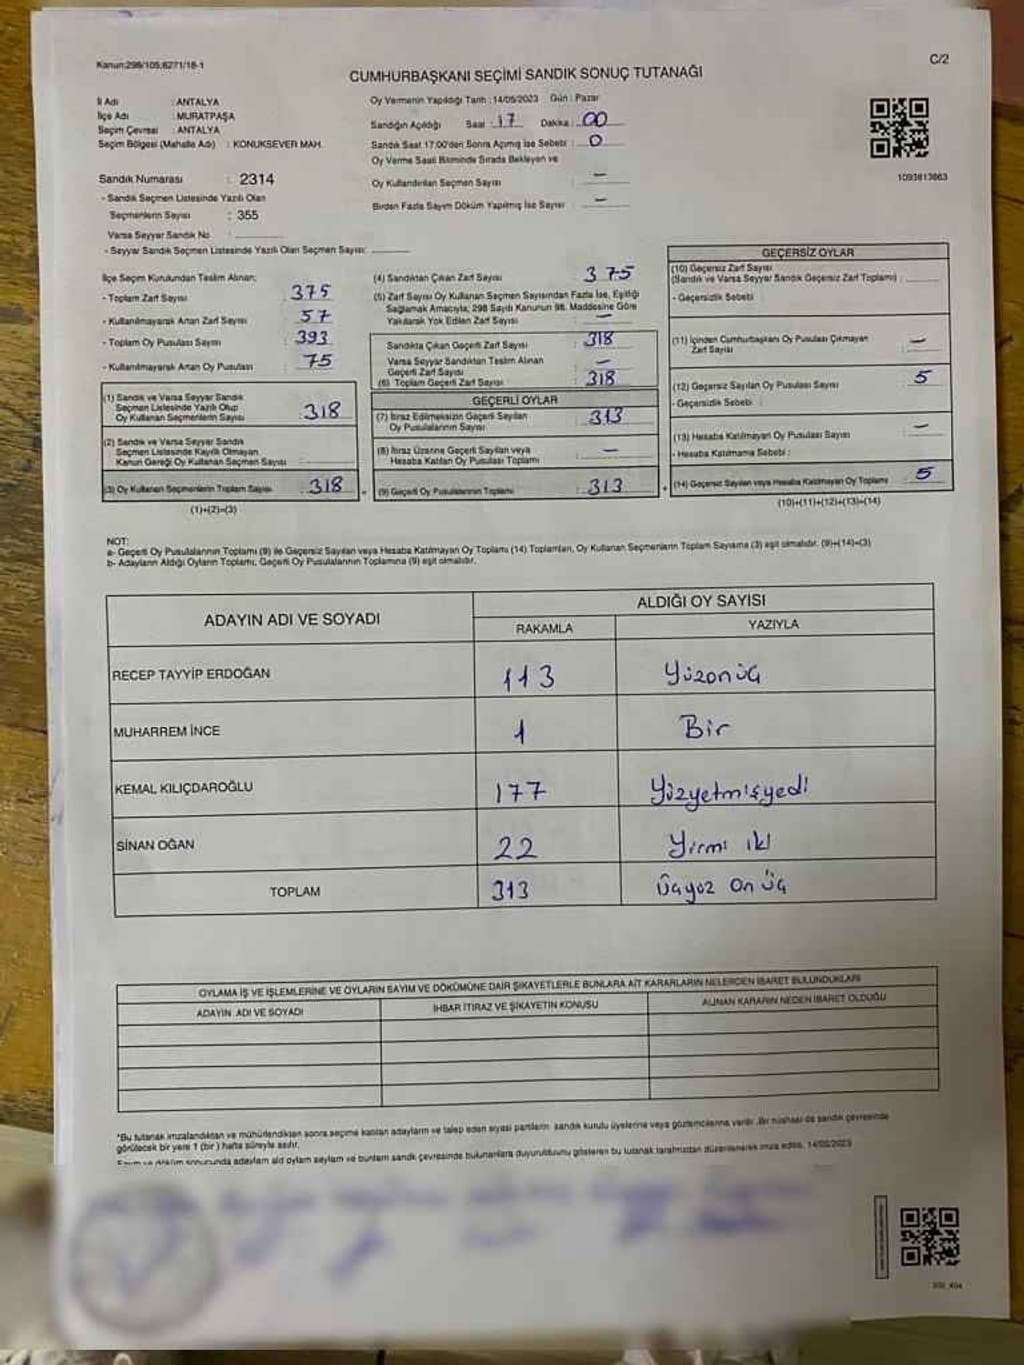 Kanun:298/105;6271/18-1
C/2
CUMHURBAŞKANI SEÇİMİ SANDIK SONUÇ TUTANAĞI
İl Adı : ANTALYA
İlçe Adı : MURATPAŞA
Seçim Çevresi : ANTALYA
Seçim Bölgesi (Mahalle Adı) : KONUKSEVER MAH.
Oy Vermenin Yapıldığı Tarih : 14/05/2023 Gün : Pazar
Sandığın Açıldığı Saat : 17 Dakika : 00
Sandık Saat 17:00'den Sonra Açılmış İse Sebebi : 0
Oy Verme Saati Bitiminde Sırada Bekleyen ve
Oy Kullandırılan Seçmen Sayısı : —
Birden Fazla Sayım Döküm Yapılmış İse Sayısı : —
1093813863
Sandık Numarası : 2314
- Sandık Seçmen Listesinde Yazılı Olan
Seçmenlerin Sayısı : 355
Varsa Seyyar Sandık No :
- Seyyar Sandık Seçmen Listesinde Yazılı Olan Seçmen Sayısı:
İlçe Seçim Kurulundan Teslim Alınan;
- Toplam Zarf Sayısı : 375
- Kullanılmayarak Artan Zarf Sayısı : 57
- Toplam Oy Pusulası Sayısı : 393
- Kullanılmayarak Artan Oy Pusulası : 75
(1) Sandık ve Varsa Seyyar Sandık
Seçmen Listesinde Yazılı Olup
Oy Kullanan Seçmenlerin Sayısı : 318
(2) Sandık ve Varsa Seyyar Sandık
Seçmen Listesinde Kayıtlı Olmayan
Kanun Gereği Oy Kullanan Seçmen Sayısı :
(3) Oy Kullanan Seçmenlerin Toplam Sayısı : 318
(1)+(2)=(3)
(4) Sandıktan Çıkan Zarf Sayısı : 375
(5) Zarf Sayısı Oy Kullanan Seçmen Sayısından Fazla İse, Eşitliği
Sağlamak Amacıyla; 298 Sayılı Kanunun 98. Maddesine Göre
Yakılarak Yok Edilen Zarf Sayısı : —
Sandıkta Çıkan Geçerli Zarf Sayısı : 318
Varsa Seyyar Sandıktan Teslim Alınan
Geçerli Zarf Sayısı : —
(6) Toplam Geçerli Zarf Sayısı : 318
GEÇERLİ OYLAR
(7) İtiraz Edilmeksizin Geçerli Sayılan
Oy Pusulalarının Sayısı : 313
(8) İtiraz Üzerine Geçerli Sayılan veya
Hesaba Katılan Oy Pusulası Toplamı : —
(9) Geçerli Oy Pusulalarının Toplamı : 313
GEÇERSİZ OYLAR
(10) Geçersiz Zarf Sayısı
(Sandık ve Varsa Seyyar Sandık Geçersiz Zarf Toplamı) :
- Geçersizlik Sebebi :
(11) İçinden Cumhurbaşkanı Oy Pusulası Çıkmayan
Zarf Sayısı : —
(12) Geçersiz Sayılan Oy Pusulası Sayısı : 5
- Geçersizlik Sebebi :
(13) Hesaba Katılmayan Oy Pusulası Sayısı : —
- Hesaba Katılmama Sebebi :
(14) Geçersiz Sayılan veya Hesaba Katılmayan Oy Toplamı : 5
(10)+(11)+(12)+(13)=(14)
NOT:
a- Geçerli Oy Pusulalarının Toplamı (9) ile Geçersiz Sayılan veya Hesaba Katılmayan Oy Toplamı (14) Toplamları, Oy Kullanan Seçmenlerin Toplam Sayısına (3) eşit olmalıdır. (9)+(14)=(3)
b- Adayların Aldığı Oyların Toplamı, Geçerli Oy Pusulalarının Toplamına (9) eşit olmalıdır.
ADAYIN ADI VE SOYADI
ALDIĞI OY SAYISI
RAKAMLA YAZIYLA
RECEP TAYYİP ERDOĞAN 113 Yüzonüç
MUHARREM İNCE 1 Bir
KEMAL KILIÇDAROĞLU 177 Yüzyetmişyedi
SİNAN OĞAN 22 Yirmi iki
TOPLAM 313 Üçyüz on üç
OYLAMA İŞ VE İŞLEMLERİNE VE OYLARIN SAYIM VE DÖKÜMÜNE DAİR ŞİKAYETLERLE BUNLARA AİT KARARLARIN NELERDEN İBARET BULUNDUKLARI
ADAYIN ADI VE SOYADI
İHBAR İTİRAZ VE ŞİKAYETİN KONUSU
ALINAN KARARIN NEDEN İBARET OLDUĞU
*Bu tutanak imzalandıktan ve mühürlendikten sonra seçime katılan adayların ve talep eden siyasi partilerin sandık kurulu üyelerine veya gözlemcilerine verilir. Bir nüshası da sandık çevresinde
görülecek bir yere 1 (bir) hafta süreyle asılır.
Sayım ve döküm sonucunda adayların aldı oyların sayıların ve bunların sandık çevresinde bulunanlara duyurulduğunu gösteren bu tutanak tarafımızdan düzenlenerek imza edildi. 14/05/2023